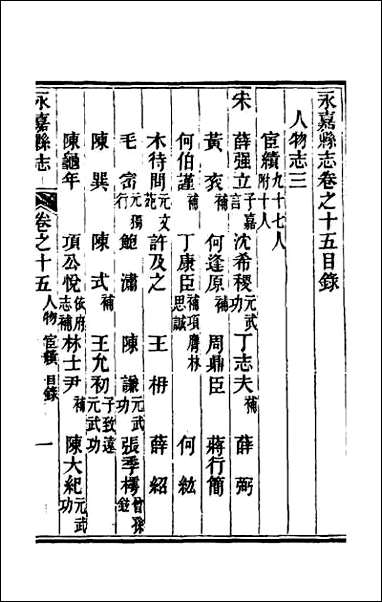 永嘉縣志卷之十五目錄
人物志三
宦績九十七人附十人
宋 薛强立子嘉言 沈希稷元武功 丁志夫補 薛弼
黃袤補 何逢原補 周鼎臣 蔣行簡
何伯謹補 丁康臣補項膺林思誠 何紘
木待問元文苑 許及之 王枏 薛紹
毛密元獨行 鮑瀟 陳謙元武功 張季樗曾孫
陳巽 陳式補 王允初子致遠元武功
陳龜年 項公悅依府志補 林士尹補 陳大紀元武功
永嘉縣志 卷之十五人物 宦績 目錄 一